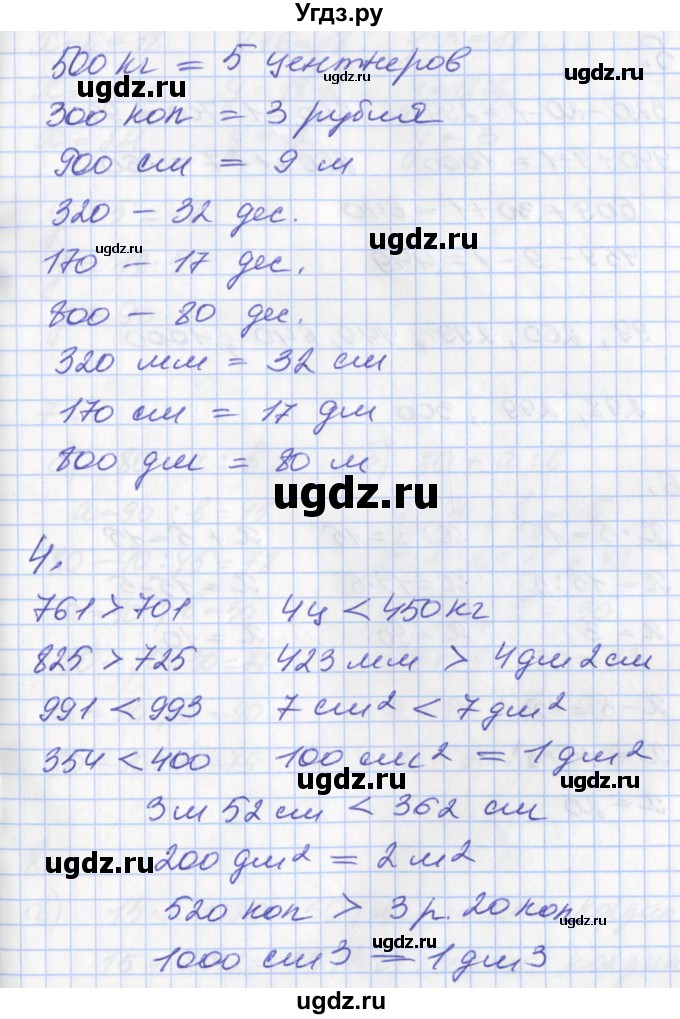 Угдз.ру
500 кг = 5 центнеров
300 коп = 3 рубля
900 см = 9 м
320 – 32 дес.
170 – 17 дес.
800 – 80 дес.
320 мм = 32 см
170 см = 17 дм
800 дм = 80 м
ugdz.ru
4.
761 > 701 4ц < 450 кг
825 > 725 423 мм > 4дм 2см
991 < 993 7 см² < 7 дм²
354 < 400 100 см² = 1 дм²
3м 52 см < 362 см
200 дм² = 2 м²
520 коп > 3 р. 20 коп
1000 см3 = 1 дм3
ugdz.ru